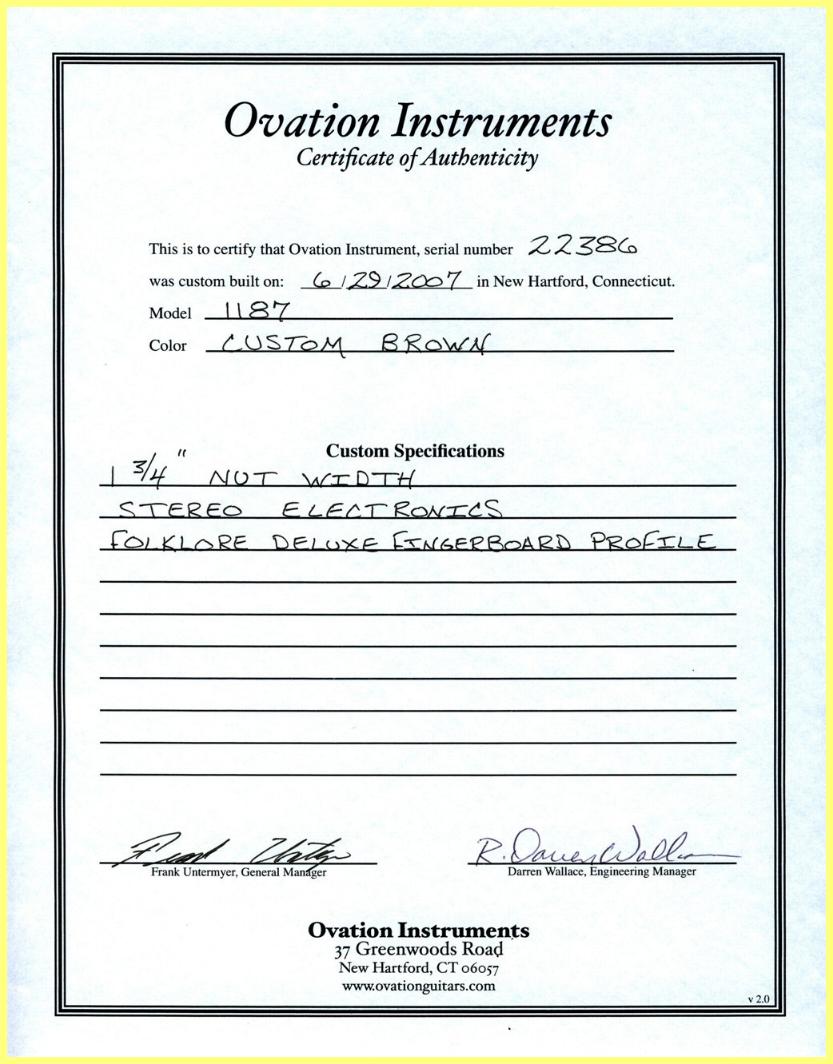 Ovation Instruments
Certificate of Authenticity
This is to certify that Ovation Instrument, serial number 22386
was custom built on: 6/29/2007 in New Hartford, Connecticut.
Model 1187
Color CUSTOM BROWN
Custom Specifications
1 3/4" NUT WIDTH
STEREO ELECTRONICS
FOLKLORE DELUXE FINGERBOARD PROFILE
Frank Untermyer R. Darren Wallace
Frank Untermyer, General Manager Darren Wallace, Engineering Manager
Ovation Instruments
37 Greenwoods Road
New Hartford, CT 06057
www.ovationguitars.com
v 2.0